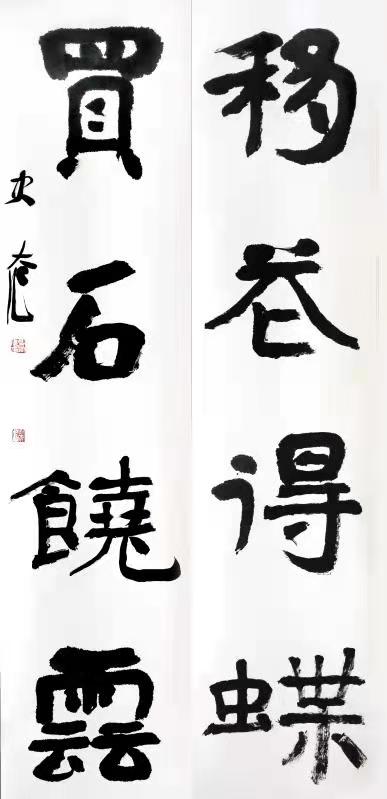 移花得蝶
買石饒雲